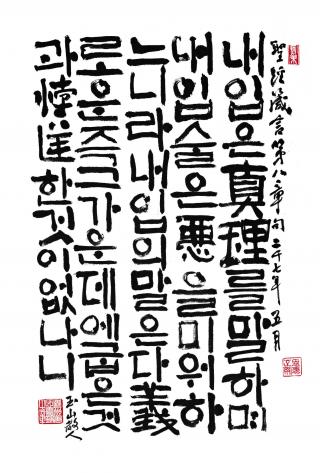 聖經箴言第八章句 二千七年 五月
내입은真理를말하며
내입술은悪을미워하
느니라내입의말은다義
로운즉그가운데에굽은것
과悖逆한것이없나니
玉山散人